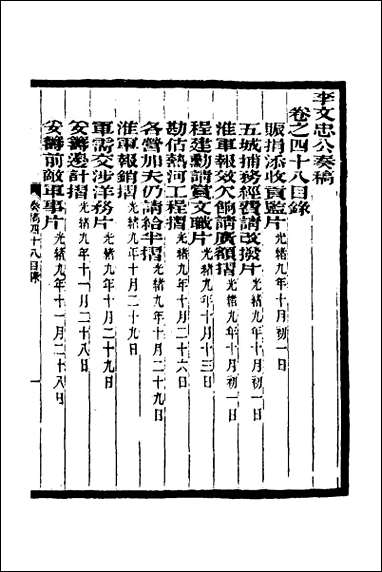 李文忠公奏稿
卷之四十八目錄
賑捐添收貢監片 光緒九年十月初一日
五城捕務經費請改撥片 光緒九年十月初一日
淮軍報效欠餉請廣額摺 光緒九年十月初一日
程建勳請賞文職片 光緒九年十月十三日
勘估熱河工程摺 光緒九年十月二十六日
各營加夫仍請給半摺 光緒九年十月二十九日
淮軍報銷摺 光緒九年十月二十九日
軍需交涉洋務片 光緒九年十月二十九日
妥籌邊計摺 光緒九年十一月二十八日
妥籌前敵軍事片 光緒九年十一月二十八日
奏稿四十八目錄
一